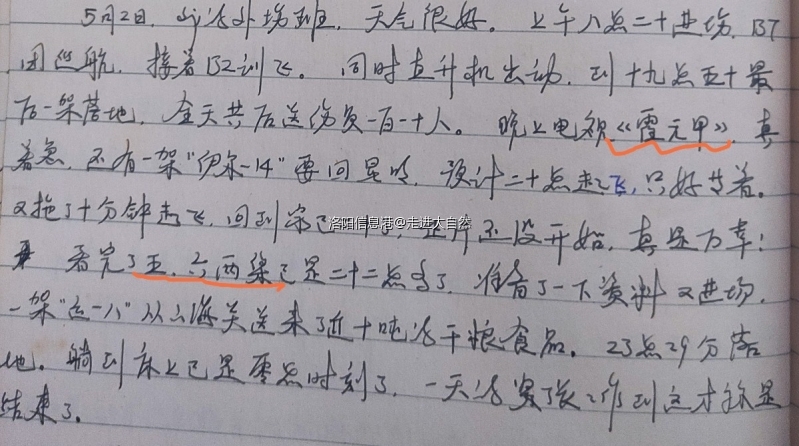 5月2日，外场班，天气很好。上午八点二十进场，137
团巡航，接着132训飞。同时直升机出动，到十九点五十最
后一架落地，全天共后送伤员一百一十人。晚上电视《霍元甲》，真
着急，还有一架“伊尔-14”要回昆明，设计二十点起飞，只好等着。
又拖了十分钟起飞，回到家已 正片还没开始，真是万幸！
看完了五、六两集已是二十二点多了，准备了一下资料又进场，
一架“运一八”从上海关送来了近十吨干粮食品。23点29分落
地。躺到床上已是零点时刻了，一天紧张工作到这才算是
结束了。
洛阳信息港@走进大自然